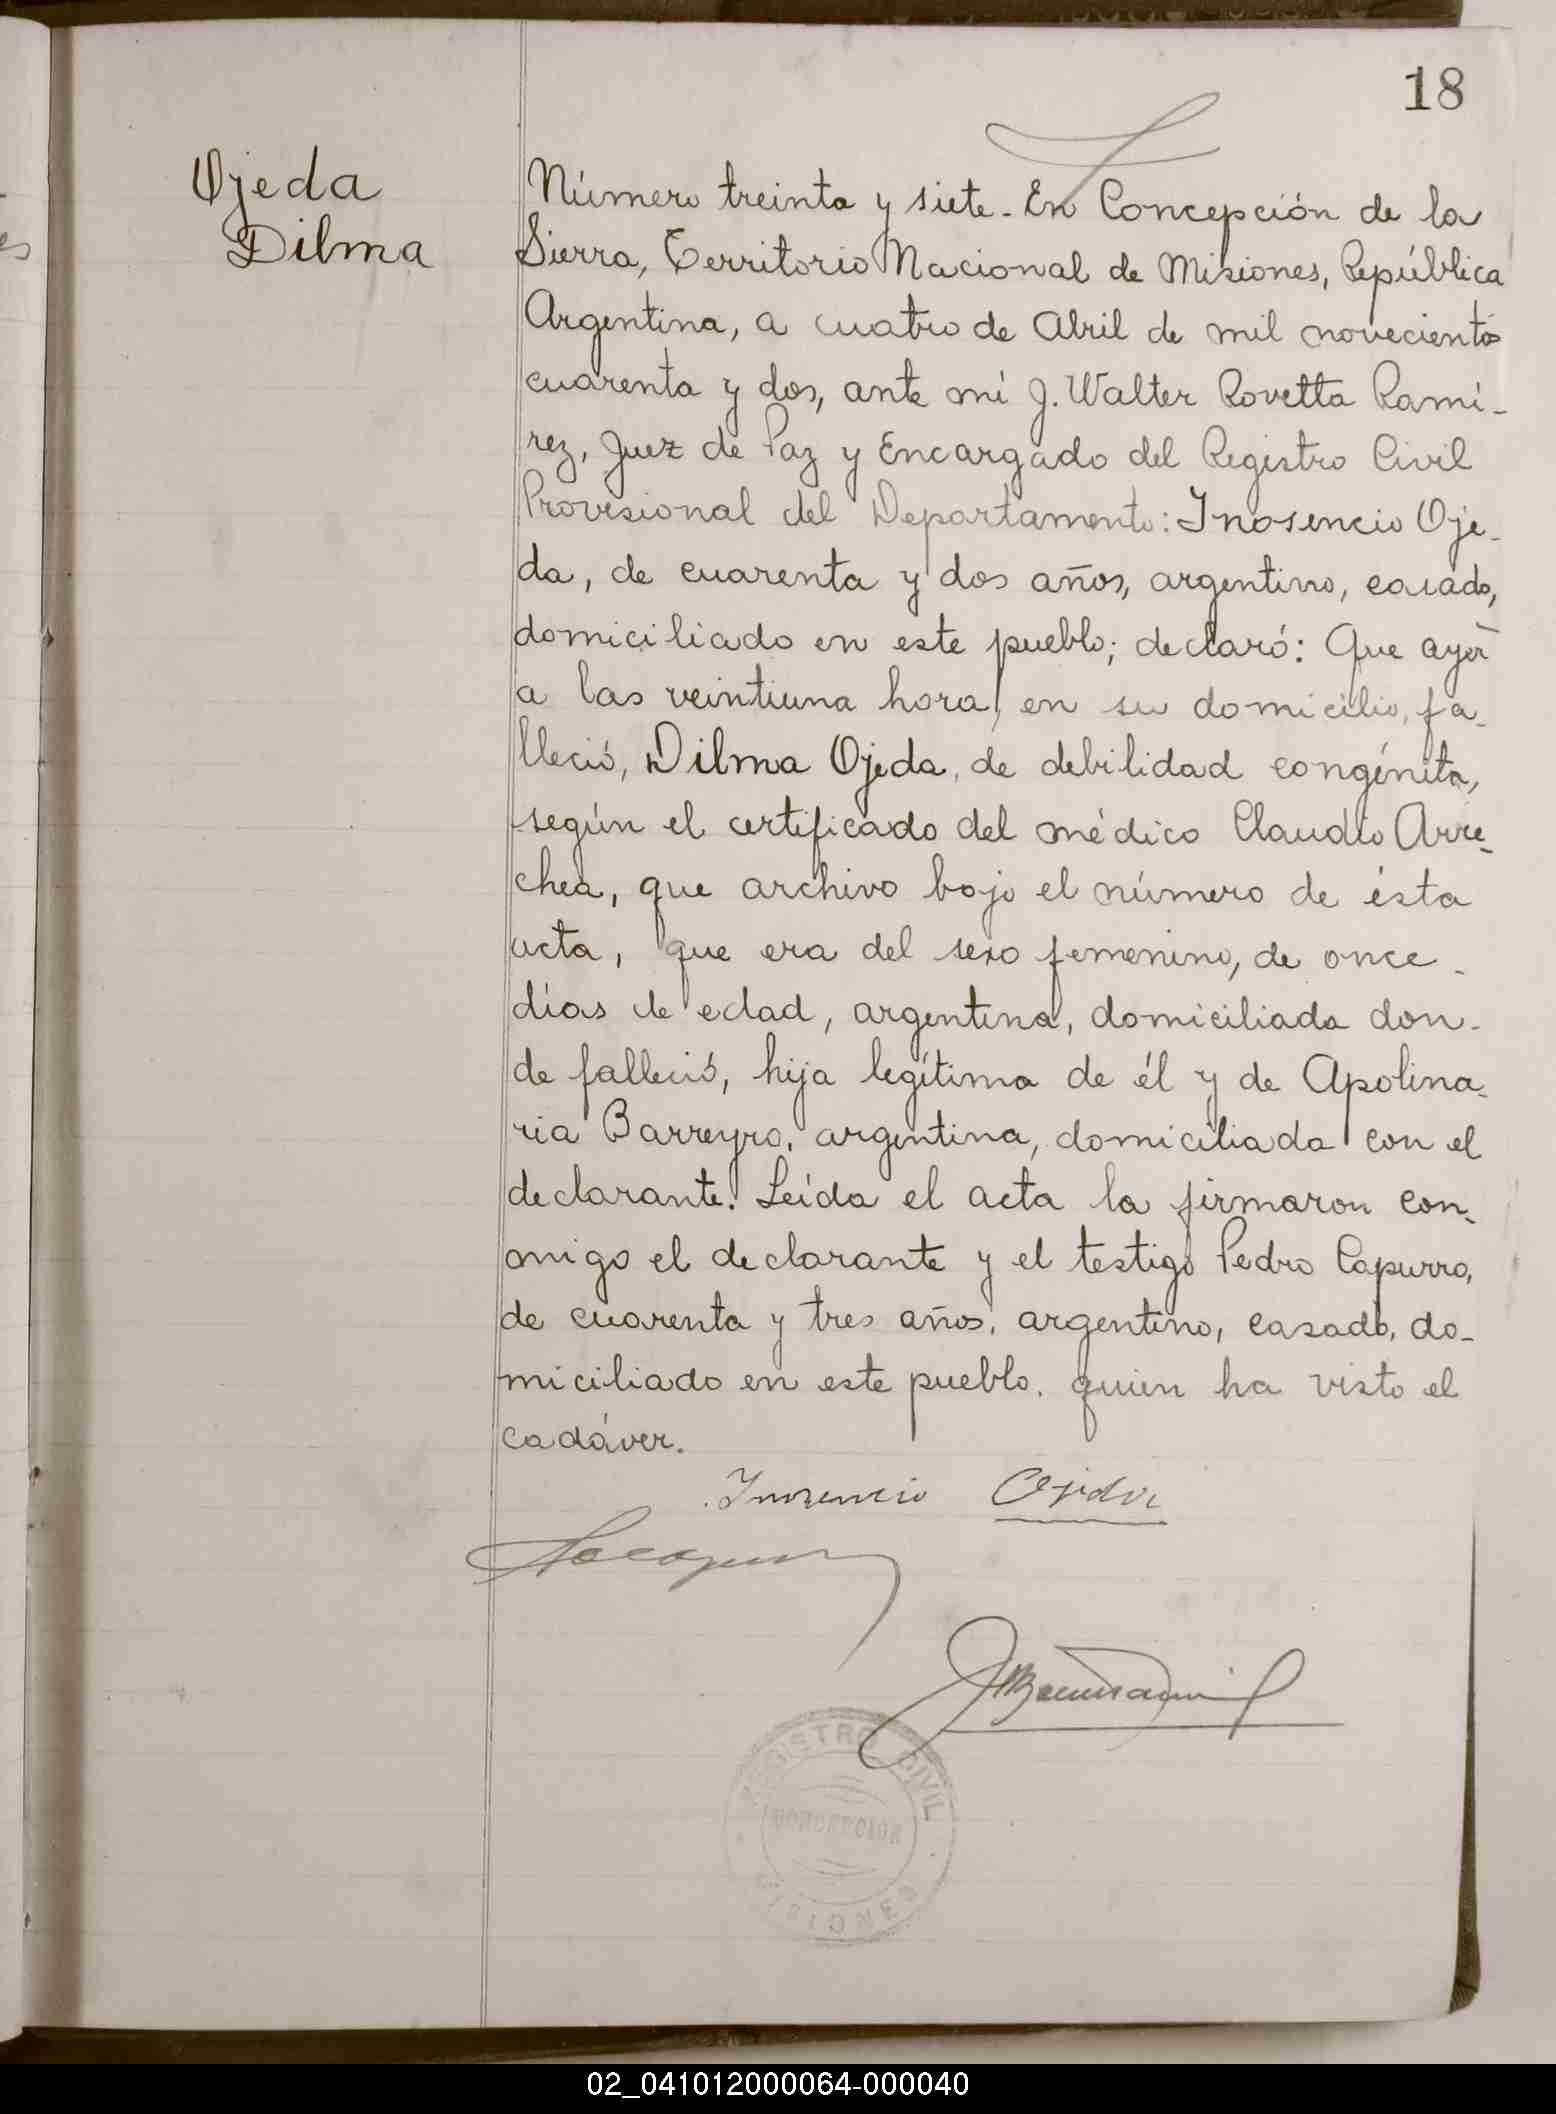 18
Ojeda
Dilma
Número treinta y siete. En Concepción de la
Sierra, Territorio Nacional de Misiones, República
Argentina, a cuatro de Abril de mil novecientos
cuarenta y dos, ante mí J. Walter Rovetta Ramí-
rez, Juez de Paz y Encargado del Registro Civil
Provisional del Departamento: Inosencio Oje-
da, de cuarenta y dos años, argentino, casado,
domiciliado en este pueblo; declaró: Que ayer
a las veintiuna hora, en su domicilio, fa-
lleció, Dilma Ojeda, de debilidad congénita,
según el certificado del médico Claudio Arre-
chea, que archivo bajo el número de ésta
acta, que era del sexo femenino, de once
días de edad, argentina, domiciliada don-
de falleció, hija legítima de él y de Apolina-
ria Barreyro, argentina, domiciliada con el
declarante. Leída el acta la firmaron con-
migo el declarante y el testigo Pedro Capurro,
de cuarenta y tres años, argentino, casado, do-
miciliado en este pueblo, quien ha visto el
cadáver.
Inosencio Ojeda
REGISTRO CIVIL
CONCEPCION
02_041012000064-000040